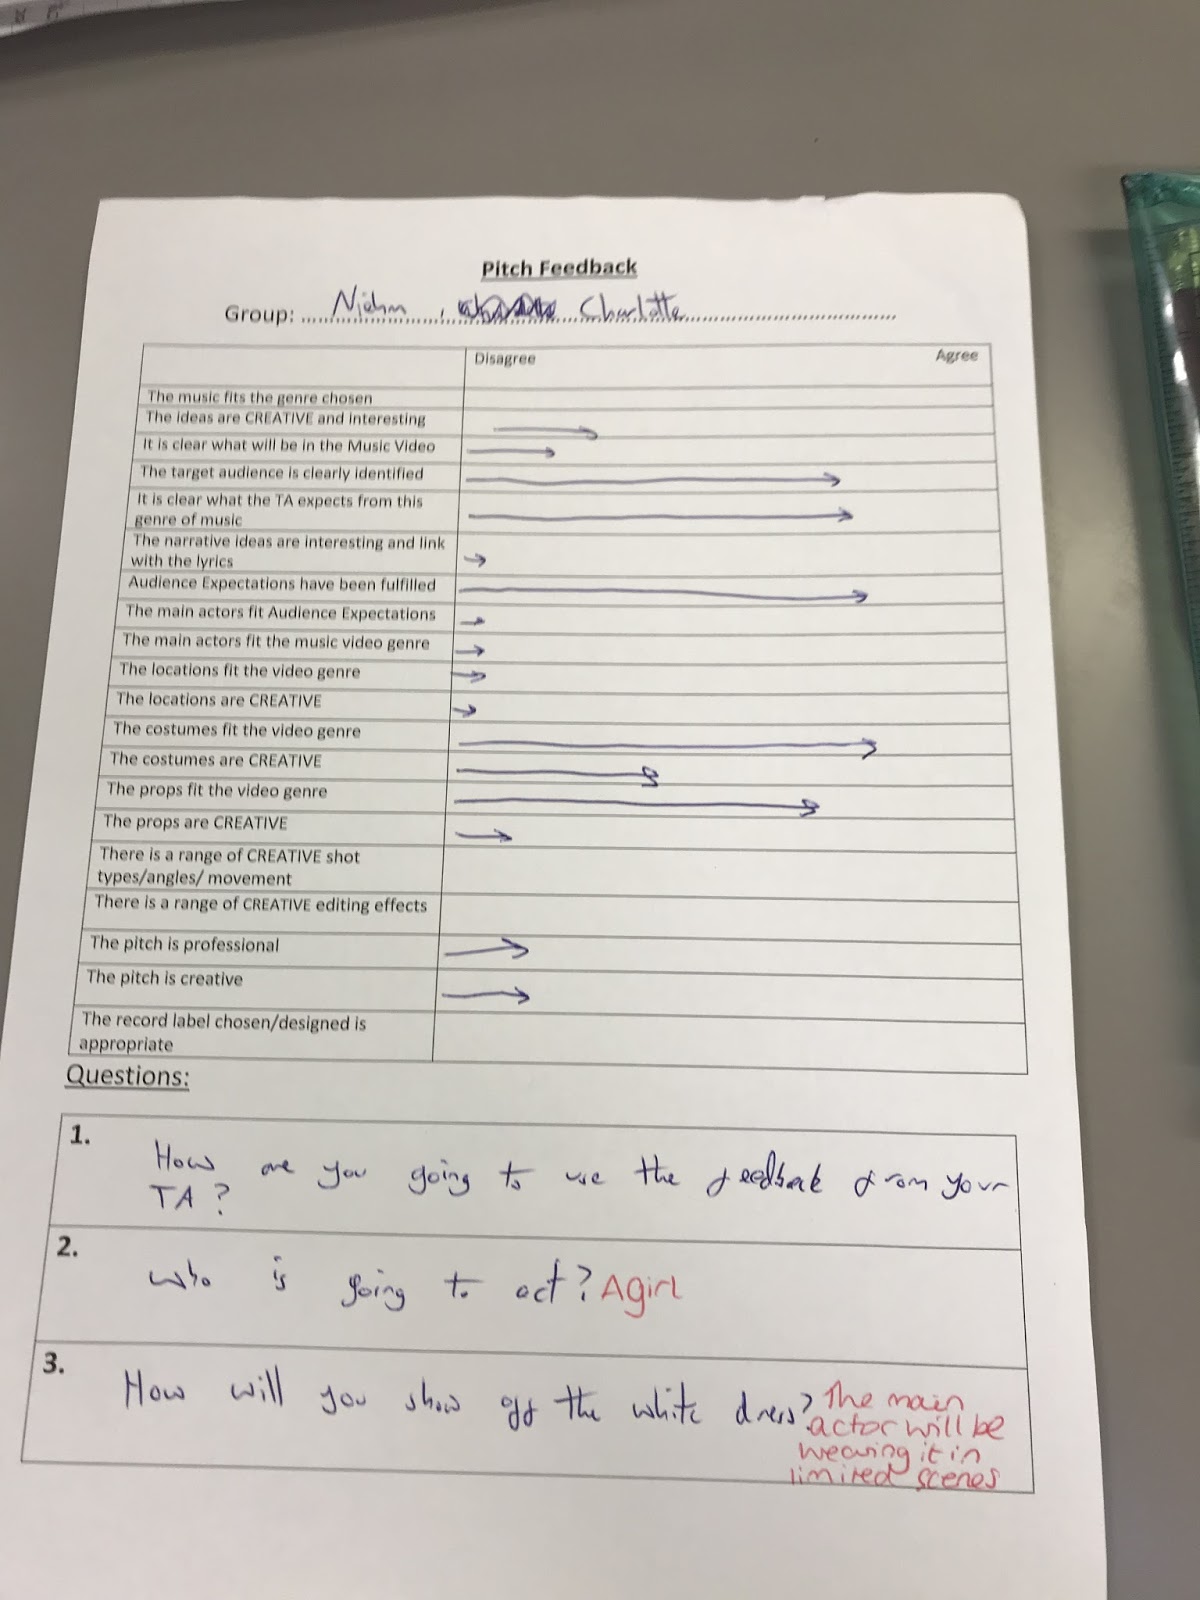 Pitch Feedback
Group: Niahm , Charlotte
Disagree Agree
The music fits the genre chosen
The ideas are CREATIVE and interesting
It is clear what will be in the Music Video
The target audience is clearly identified
It is clear what the TA expects from this
genre of music
The narrative ideas are interesting and link
with the lyrics
Audience Expectations have been fulfilled
The main actors fit Audience Expectations
The main actors fit the music video genre
The locations fit the video genre
The locations are CREATIVE
The costumes fit the video genre
The costumes are CREATIVE
The props fit the video genre
The props are CREATIVE
There is a range of CREATIVE shot
types/angles/ movement
There is a range of CREATIVE editing effects
The pitch is professional
The pitch is creative
The record label chosen/designed is
appropriate
Questions:
1. How are you going to use the feedback from your
TA ?
2. who is going to act? A girl
3. How will you show off the white dress? The main
actor will be
wearing it in
limited scenes